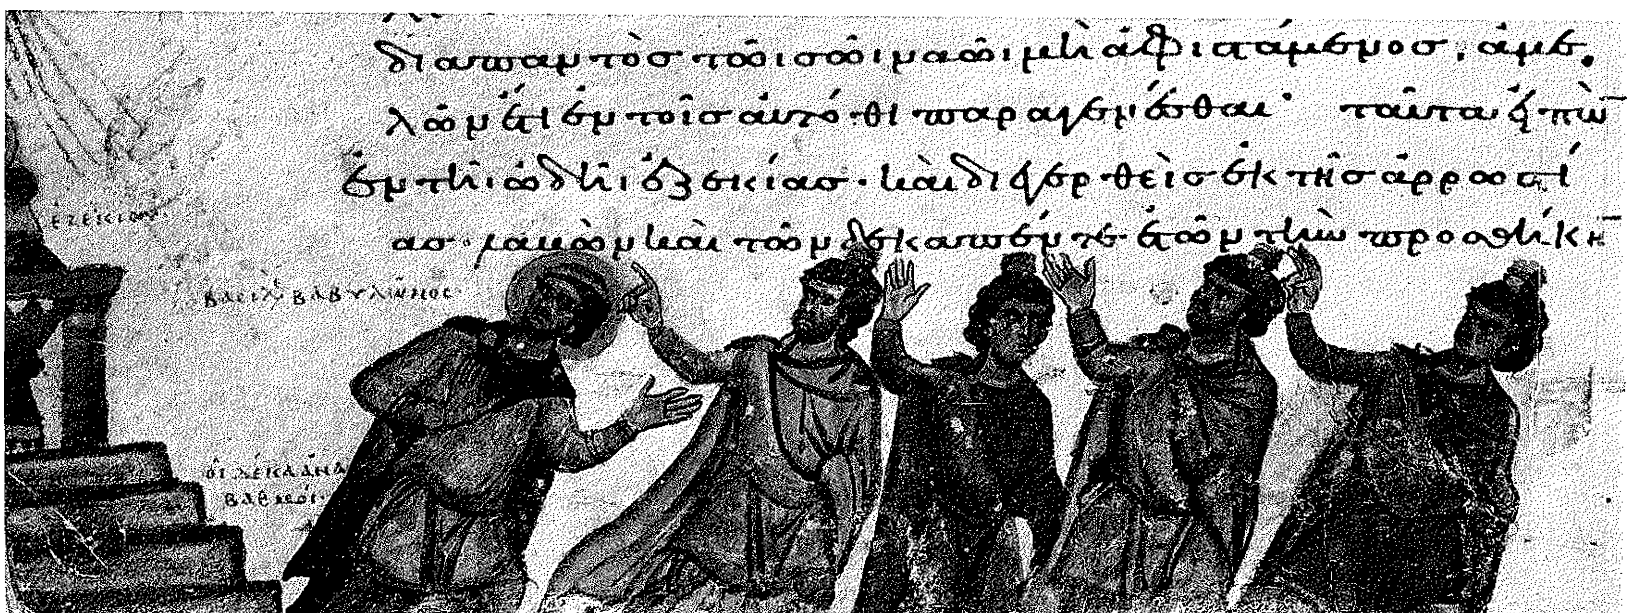 διαπαντὸς τῶι σῶι ναῶι μὴ ἀφιστάμενος, ἀμέ
λῶν ἔτι ἐν τοῖς αὐτόθι παραγενέσθαι· ταῦτα εἰπὼ
ἐν τῆι ὠδῆι ἐζεκίας· καὶ διεγερθεὶς ἐκ τῆς ἀρρωστί
ας· λαβὼν καὶ τῶν δεκαπέντε ἐτῶν τὴν προσθήκη
ἐζεκίας
βασιλ βαβυλῶνος
οἱ δέκα ἀνα
βαθμοί